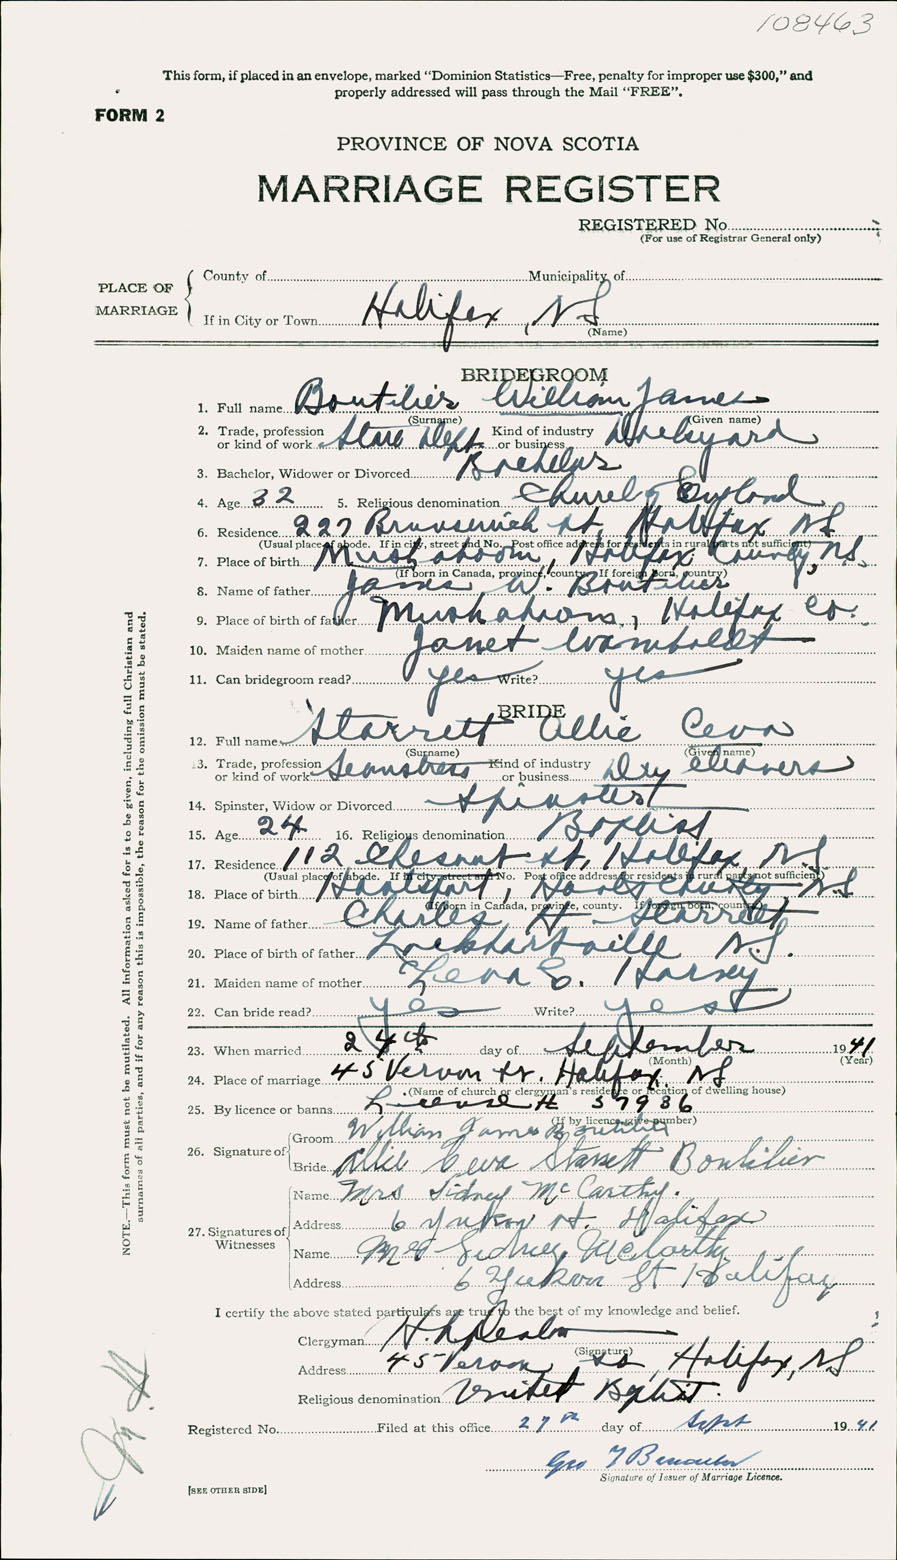 108463
This form, if placed in an envelope, marked “Dominion Statistics—Free, penalty for improper use $300,” and
properly addressed will pass through the Mail “FREE”.
FORM 2
PROVINCE OF NOVA SCOTIA
MARRIAGE REGISTER
REGISTERED No
(For use of Registrar General only)
PLACE OF MARRIAGE
County of Municipality of
If in City or Town Halifax, NS
(Name)
BRIDEGROOM
1. Full name Boutilier William James
(Surname) (Given name)
2. Trade, profession or kind of work Store Dept Kind of industry or business Dockyard
3. Bachelor, Widower or Divorced Bachelor
4. Age 32 5. Religious denomination Church of England
6. Residence 227 Brunswick St Halifax NS
(Usual place of abode. If in city, street and No. Post office address for residents in rural parts not sufficient)
7. Place of birth Mushaboom, Halifax County, NS.
(If born in Canada, province, county. If foreign born, country)
8. Name of father James W. Boutilier
9. Place of birth of father Mushaboom, Halifax Co.
10. Maiden name of mother Janet Wamboldt
11. Can bridegroom read? yes Write? yes
BRIDE
12. Full name Starrett Allie Ceva
(Surname) (Given name)
13. Trade, profession or kind of work Seamstress Kind of industry or business Dry Cleaners
14. Spinster, Widow or Divorced Spinster
15. Age 24 16. Religious denomination Baptist
17. Residence 112 Chesnut St, Halifax NS
(Usual place of abode. If in city, street and No. Post office address for residents in rural parts not sufficient)
18. Place of birth Hantsport, Hants County NS
(If born in Canada, province, county. If foreign born, country)
19. Name of father Charles H Starrett
20. Place of birth of father Lockhartville N.S.
21. Maiden name of mother E. Harvey
22. Can bride read? yes Write? yes
23. When married 24th day of September 1941
(Month) (Year)
24. Place of marriage 45 Vernon St. Halifax, NS
(Name of church or clergyman's residence or location of dwelling house)
25. By licence or banns License # 57936
(If by licence, give number)
26. Signature of
Groom William James Boutilier
Bride Allie Ceva Starrett Boutilier
27. Signatures of Witnesses
Name Mrs Sidney McCarthy.
Address 6 Yukon St. Halifax
Name Sidney McCarthy
Address 6 Yukon St Halifax
I certify the above stated particulars are true to the best of my knowledge and belief.
Clergyman
(Signature)
Address 45 Vernon St Halifax, NS
Religious denomination United Baptist.
Registered No. Filed at this office 27th day of Sept 1941
Geo
Signature of Issuer of Marriage Licence.
[SEE OTHER SIDE]
NOTE.—This form must not be mutilated. All information asked for is to be given, including full Christian and
surnames of all parties, and if for any reason this is impossible, the reason for the omission must be stated.